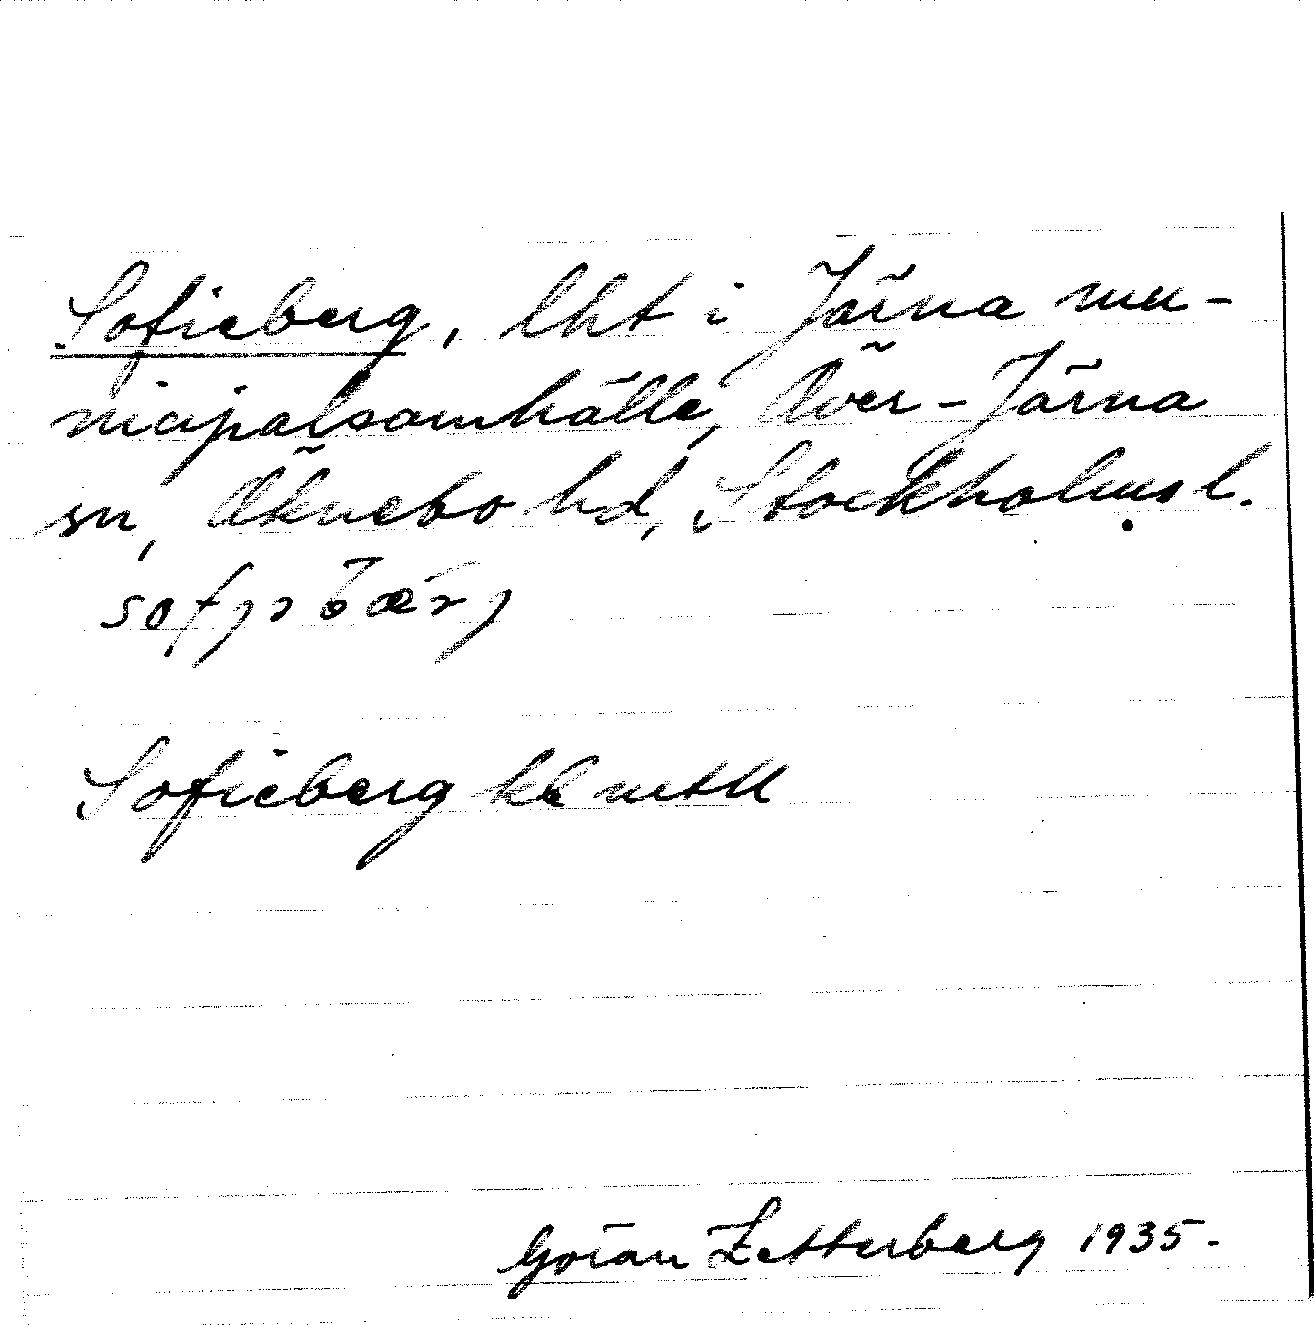 Sofieberg, lht i Järna mu-
nicipalsamhälle, Över-Järna
sn, Öknebo hd, Stockholms l.
Sofieberg
Göran Zetterberg 1935.